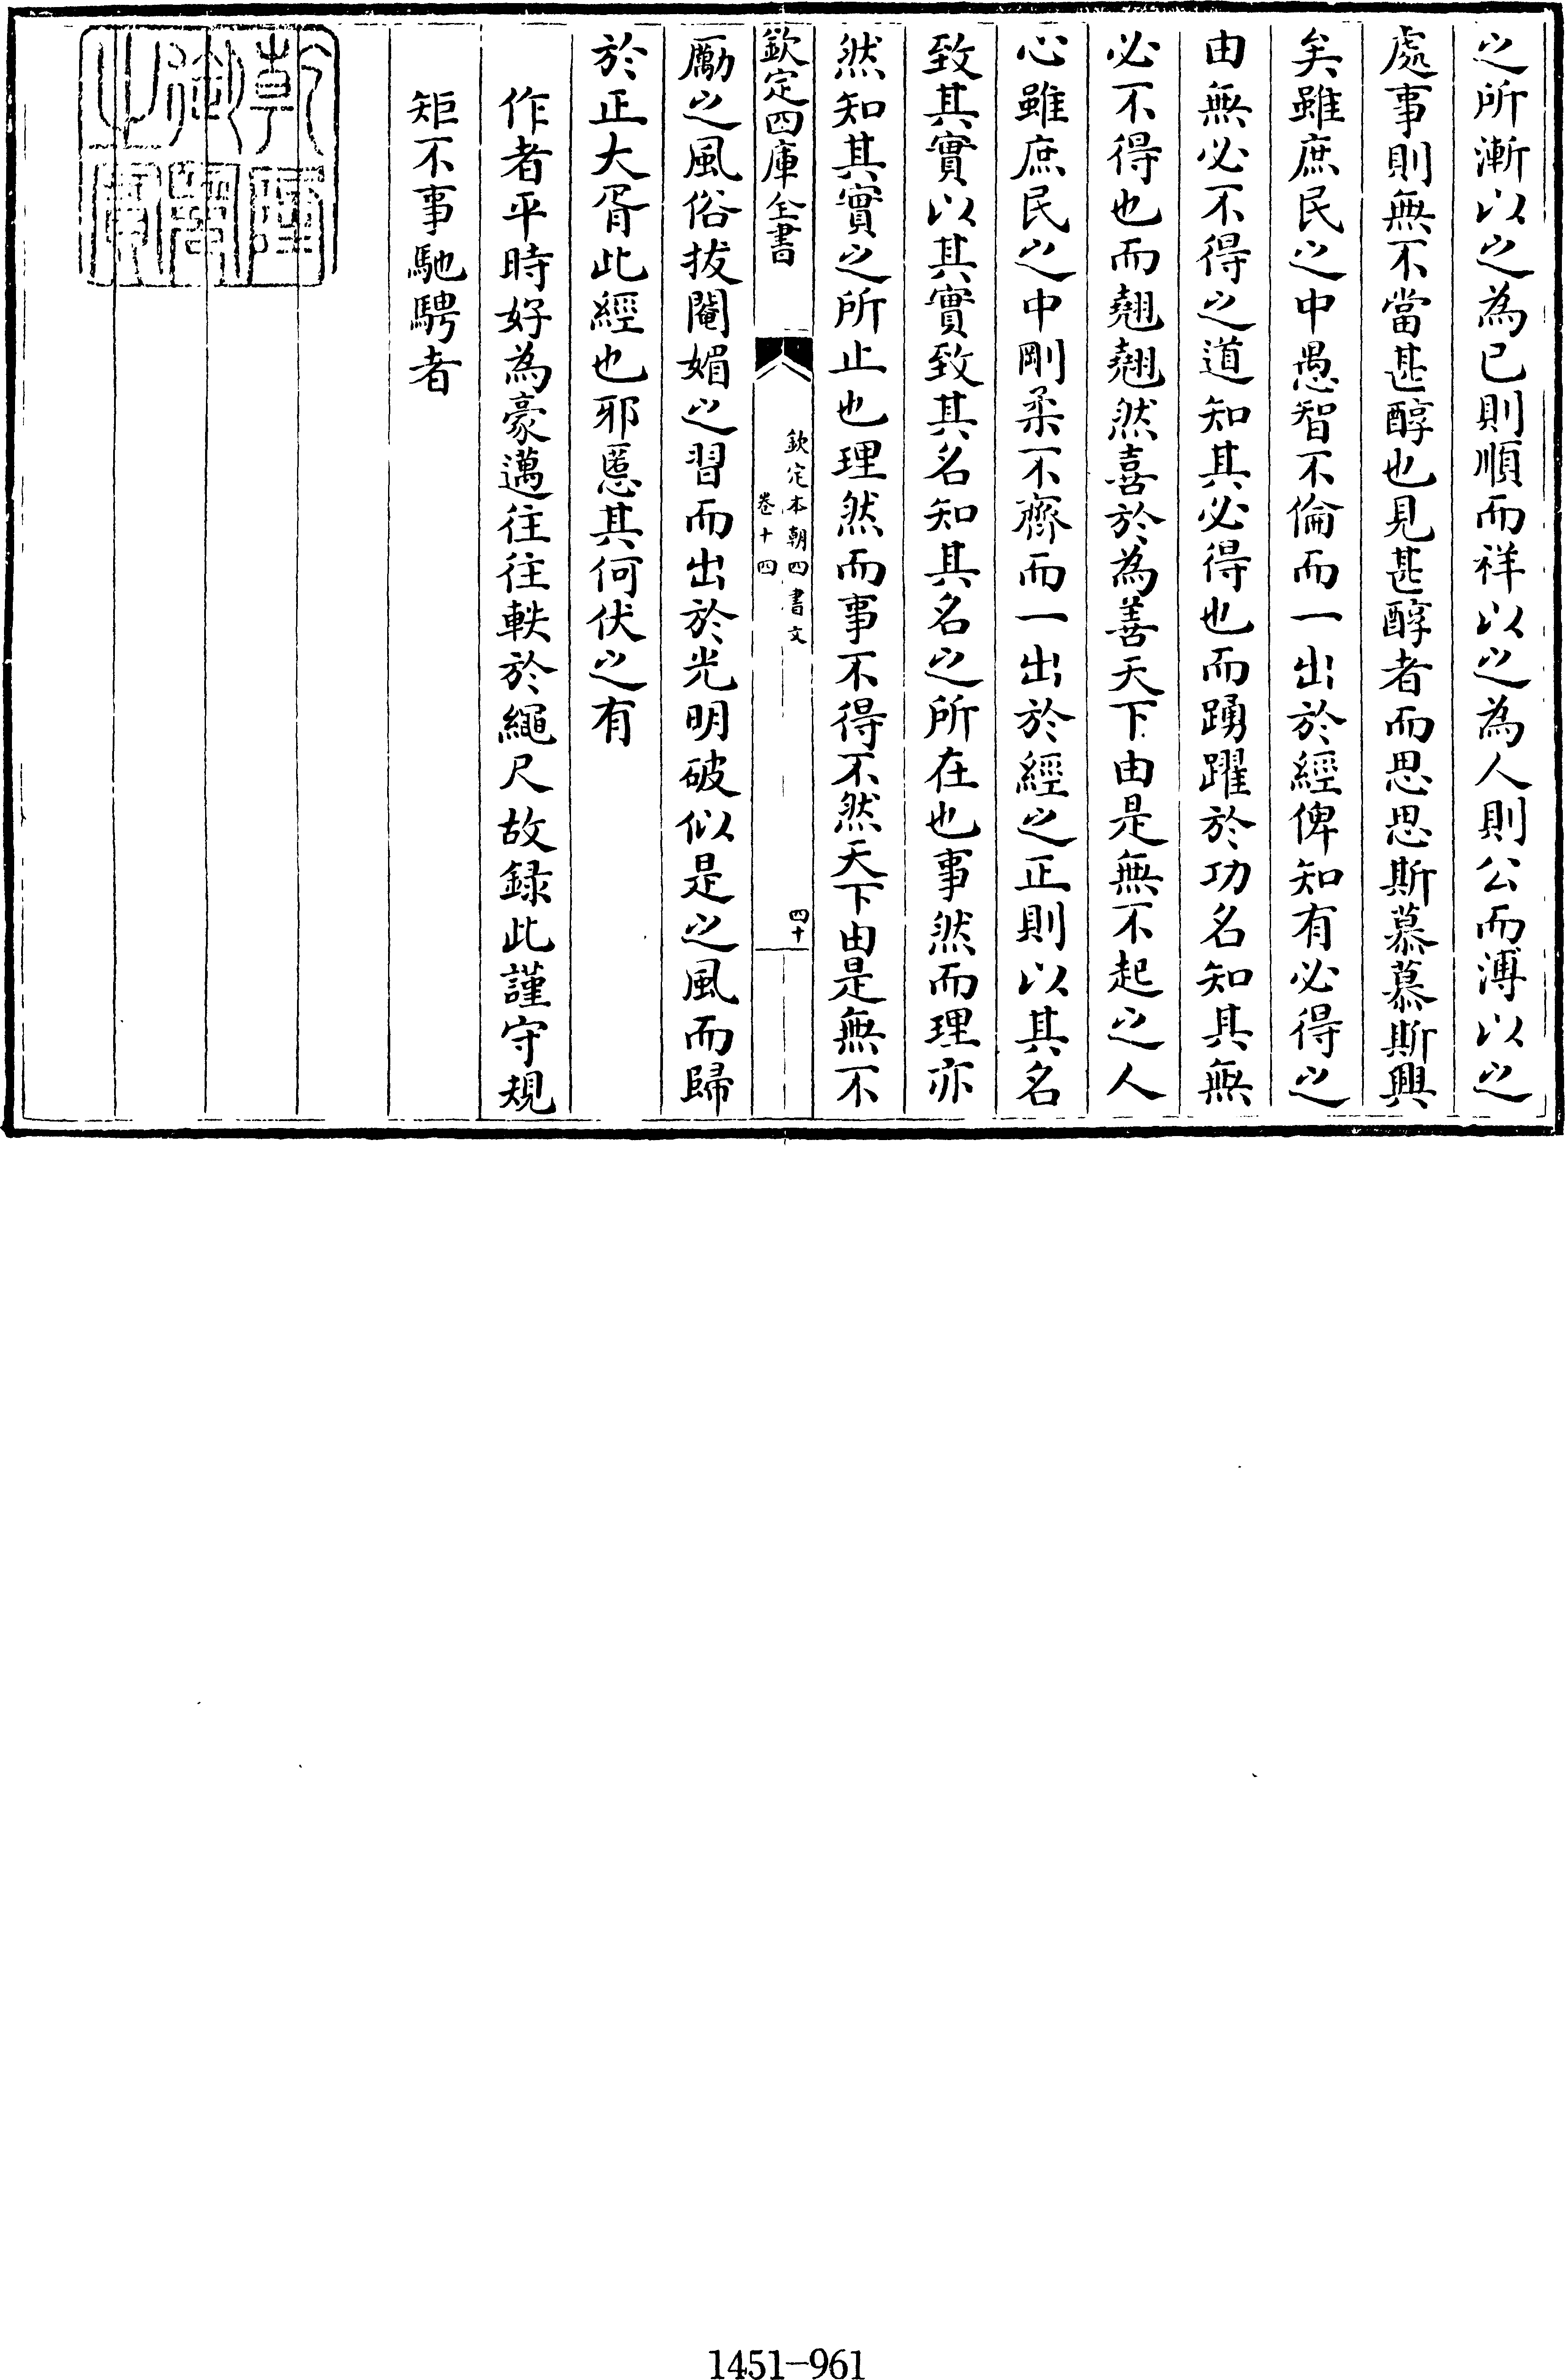 之所漸以之為已則順而祥以之為人則公而溥以之
處事則無不當甚醇也見甚醇者而思思斯慕慕斯興
矣雖庶民之中愚智不倫而一出於經俾知有必得之
由無必不得之道知其必得也而踴躍於功名知其無
必不得也而翹翹然喜於為善天下由是無不起之人
心雖庶民之中剛柔不齊而一出於經之正則以其名
致其實以其實致其名知其名之所在也事然而理亦
然知其實之所止也理然而事不得不然天下由是無不
欽定四庫全書
欽定本朝四書文
卷十四
四十
勵之風俗拔閹媚之習而出於光明破似是之風而歸
於正大胥此經也邪慝其何伏之有
作者平時好為豪邁往往軼於繩尺故録此謹守規
矩不事馳騁者
乾隆
御覽
之寶
1451-961